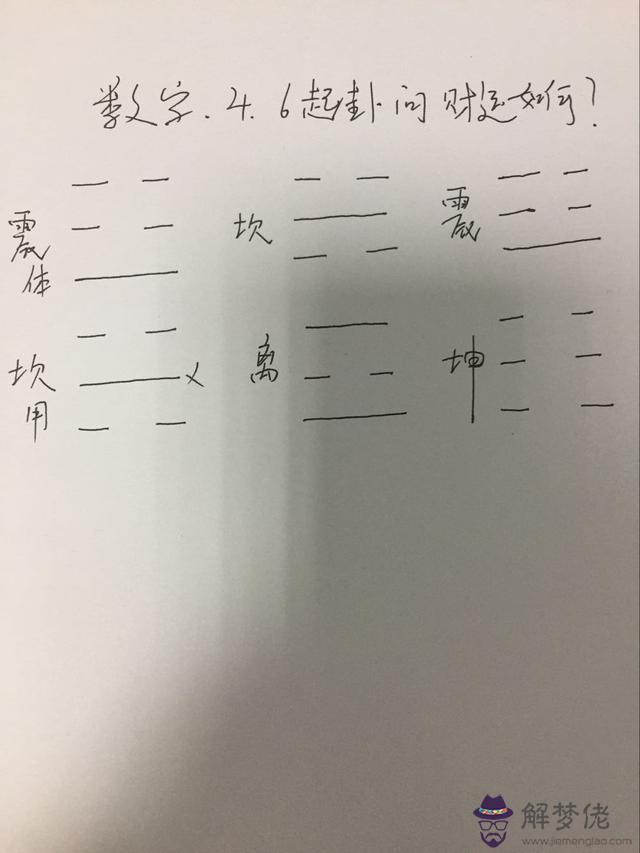 数字.4.6起卦问财运如何?
震 坎 震
体
坎 离 坤
用
解梦佬
www.jiemenglao.com